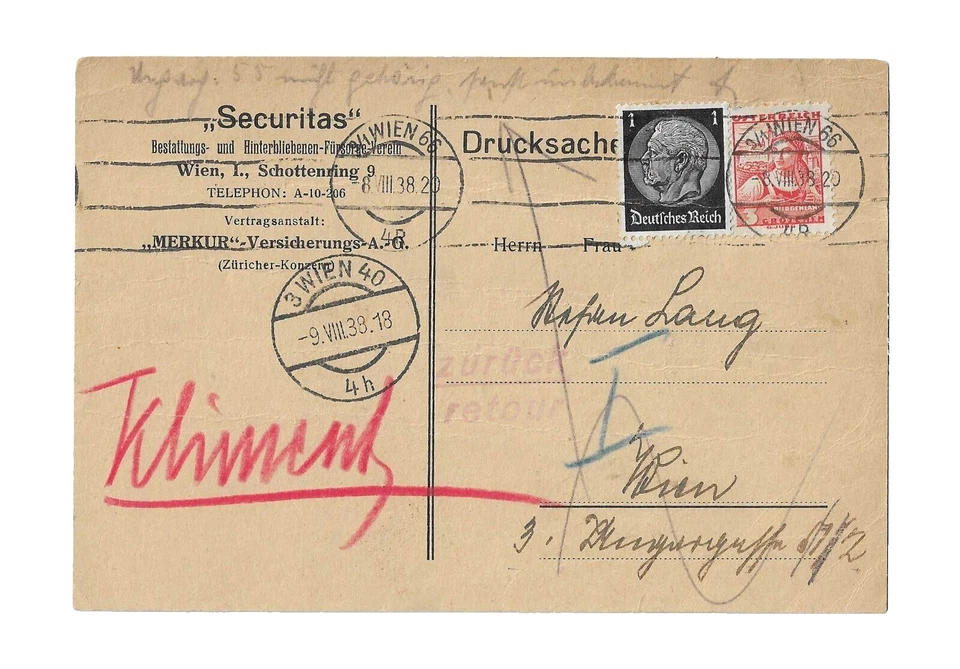 55 nicht gehörig, sonst unbekannt
„Securitas“
Bestattungs- und Hinterbliebenen-Fürsorge-Verein
Wien, I., Schottenring 9
TELEPHON: A-10-206
Vertragsanstalt:
„MERKUR“-Versicherungs-A.-G.
(Züricher-Konzern)
WIEN 66
-8.VIII.38.20
4R
3 WIEN 40
-9.VIII.38.18
4h
Kliment
Drucksache
1 1
Deutsches Reich
ÖSTERREICH
3
GROSCHEN
WIEN 66
8.VIII.38.20
4R
Herrn Frau
Stefan Lang
zurück
retour
I
Wien
3. Ungargasse